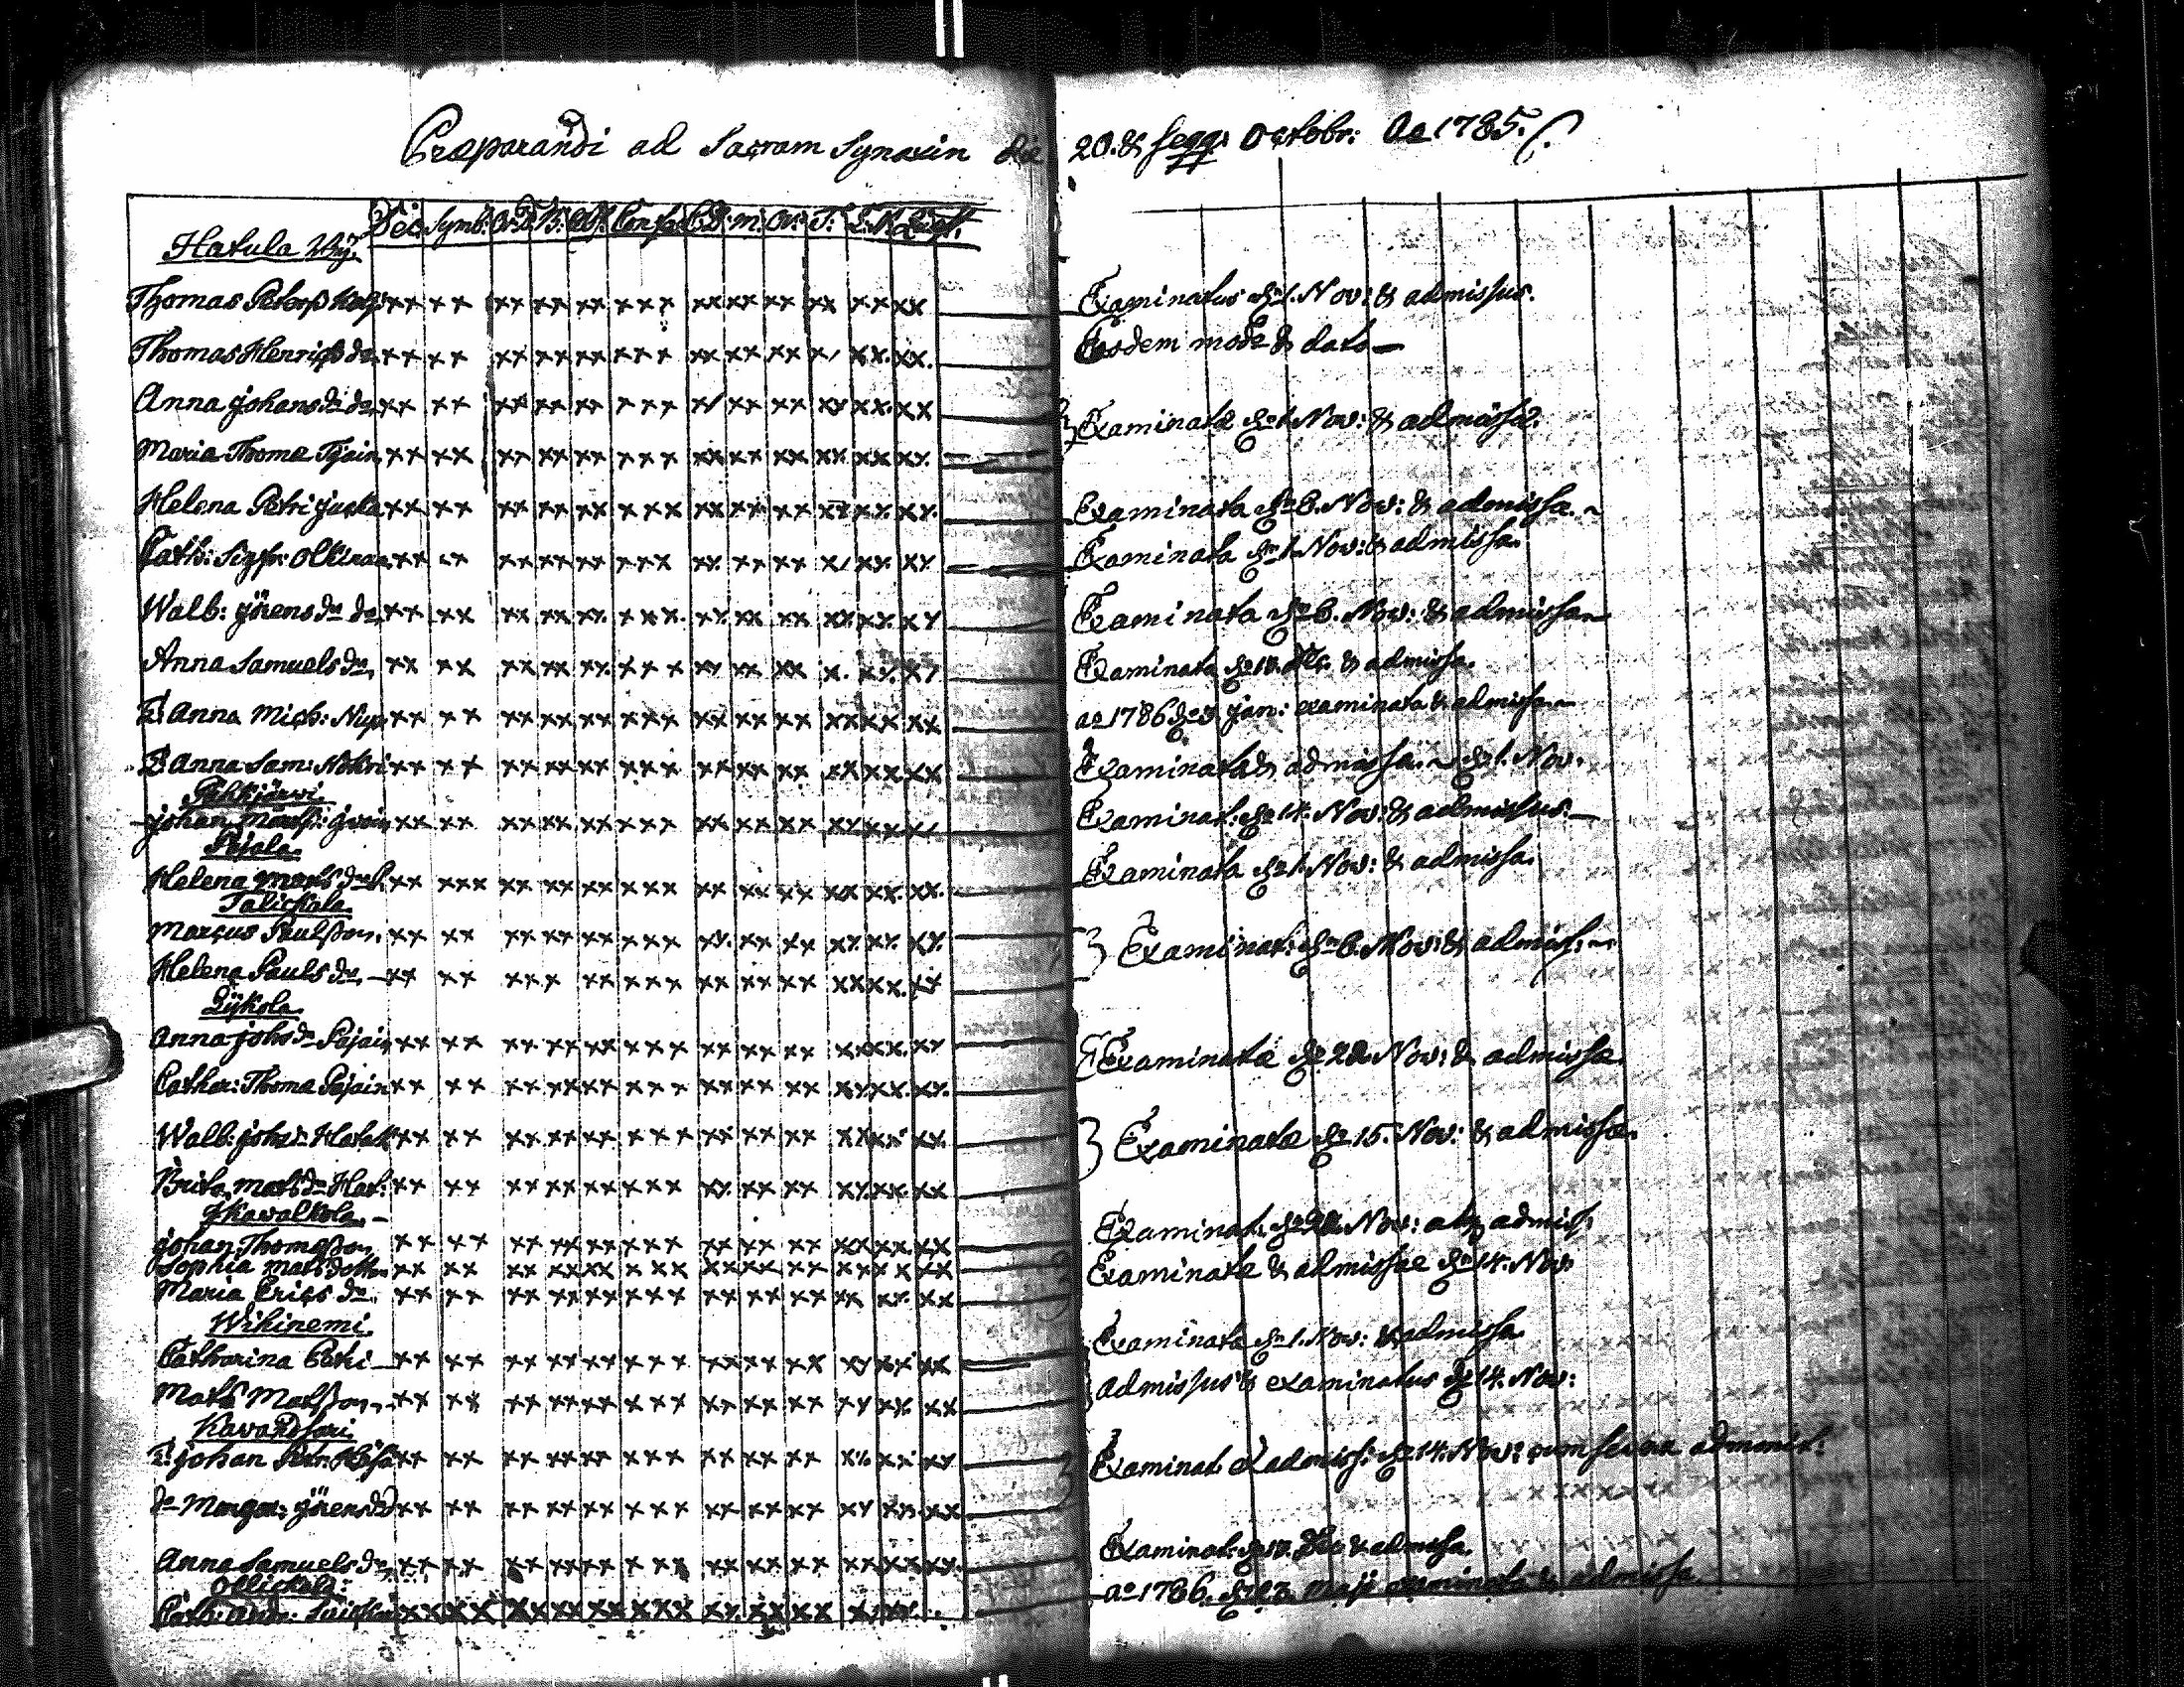 Præparandi ad Sacram Synaxin die 20. & seqq: Octobr: Ao 1785.
Dec. Symb: Or. D. B: Abs: Confes C. D. m. Or: T: L. N.
Hatula Bÿ.
Thomas Petersß xx xx xx xx xx xxx xx xx xx xx xx xx Examinatus d. 1. Nov: & admissus.
Thomas Henrigß do xx xx xx xx xx xxx xx xx xx x/ xx. xx. Eodem modo & dato
Anna Johans dr do xx xx xx xx xx xxx x/ xx xx xx xx. xx Examinatæ d. 1. Nov: & admissæ.
Maria Thomæ xx xx xx xx xx xxx xx xx xx xx xx xx.
Helena Petri xx xx xx xx xx xxx xx xx xx xx xx xx Examinata d. 6. Nov: & admissa.
Cath: Sigfr: xx xx xx xx xx xxx xx xx xx x/ xx xx Examinata d. 1. Nov: & admissa.
Walb: Jörens dr do xx xx xx xx xx xxx xx xx xx xx xx xx Examinata d. 6. Nov: & admissa
Anna Samuels dr, xx xx xx xx xx xxx xx xx xx x. xx xx Examinata & admissa.
E. Anna Mich: xx xx xx xx xx xxx xx xx xx xx xx xx ao 1786 Jan: examinata & admissa
E. Anna Sam: xx xx xx xx xx xxx xx xx xx xx xx xx Examinata & admissa. d. 1. Nov.
Pihkjärvi
Johan xx xx xx xx xx xxx xx xx xx xx xx xx Examinat: d. 14. Nov: & admissus.
Pajola.
Helena Mats dr xx xxx xx xx xx xxx xx xx xx xx xx xx. Examinata d. 1. Nov: & admissa.
Talickala.
Marcus Paulßon. xx xx xx xx xx xxx xx xx xx xx xx xx Examinat: d. 6. Nov: & admiss:
Helena Pauls dr. xx xx xxx xx xxx xx xx xx xx xx. xx
Lÿkola.
Anna Johs dr Pajain xx xx xx xx xx xxx xx xx xx xx xx. xx Examinatæ d. Nov: & admissæ.
Cathar: Thomæ Pajain xx xx xx xx xx xxx xx xx xx xx xx. xx.
Walb: Johan: xx xx xx xx xx xxx xx xx xx xx xx xx Examinatæ d. 15. Nov: & admissæ.
Brita Mats dr Hat: xx xx xx xx xx xxx xx xx xx xx xx xx
Kavalkola.
Johan Thomaßon xx xx xx xx xx xxx xx xx xx xx xx xx Examinat. Nov: atq admiss:
Sophia Mats dotter xx xx xx xx xx xxx xx xx xx xx xx xx Examinatæ & admissæ d. 14. Nov
Maria Erics dr. xx xx xx xx xx xxx xx xx xx xx xx xx
Wikinemi.
Catharina Petri xx xx xx xx xx xxx xx xx xx xx xx xx Examinata d. 1. Nov: & admissa
Mats Matßon xx xx xx xx xx xxx xx xx xx xx xx xx admissus & examinatus d. 14. Nov:
Kavandsari.
E: Johan Petr: xx xx xx xx xx xxx xx xx xx xx xx xx Examinat. & admiss: d. 14. Nov: cum admonit:
do Margar: Jörens dr xx xx xx xx xx xxx xx xx xx xx xx xx
Anna Samuels dr, xx xx xx xx xx xxx xx xx xx xx xx xx. Examinat: & admissa.
Ollickala:
Cath: Andr: xx xx xx xx xx xxx xx xx xx ao 1786. Maji examinata & admissa